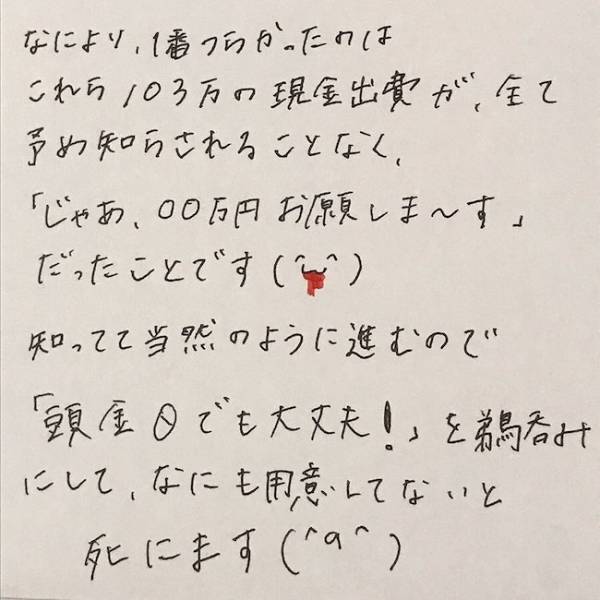 なにより、1番つらかったのは
これら103万の現金出費が、全て
予め知らされることなく、
「じゃあ、〇〇万円お願いしま〜す」
だったことです(^ω^)
知ってて当然のように進むので
「頭金0でも大丈夫!」を鵜呑み
にして、なにも用意してないと
死にます(^q^)